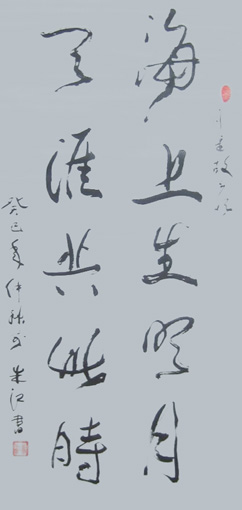 海上生明月
天涯共此时
癸巳年仲秋于朱江书